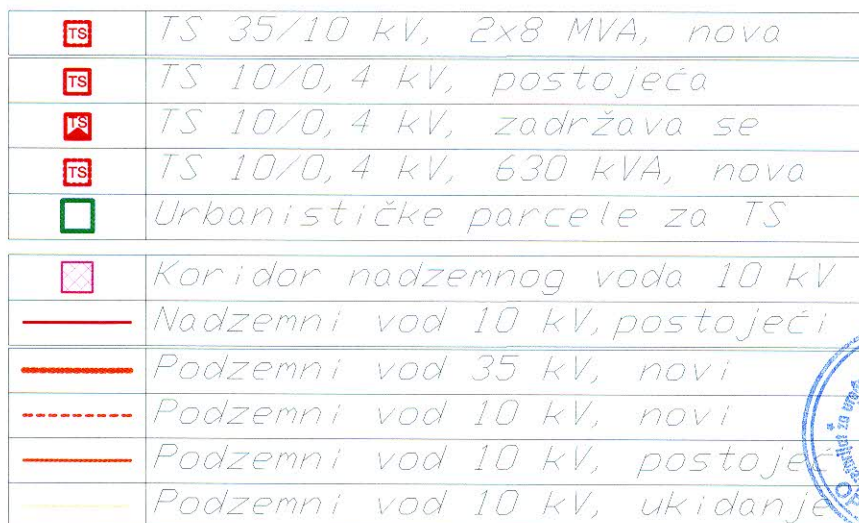 TS TS 35/10 kV, 2x8 MVA, nova
TS TS 10/0,4 kV, postojeća
TS TS 10/0,4 kV, zadržava se
TS TS 10/0,4 kV, 630 kVA, nova
Urbanističke parcele za TS
Koridor nadzemnog voda 10 kV
Nadzemni vod 10 kV, postojeći
Podzemni vod 35 kV, novi
Podzemni vod 10 kV, novi
Podzemni vod 10 kV, postojeć
Podzemni vod 10 kV, ukidanje